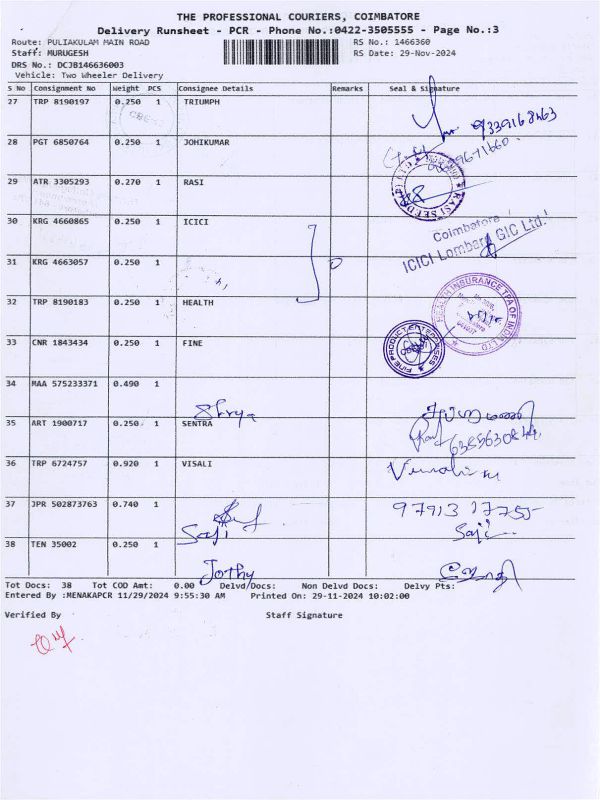 THE PROFESSIONAL COURIERS, COIMBATORE
Delivery Runsheet - PCR - Phone No.:0422-3505555 - Page No.:3
Route: PULIAKULAM MAIN ROAD RS No.: 1466360
Staff: MURUGESH RS Date: 29-Nov-2024
DRS No.: DCJB146636003
Vehicle: Two Wheeler Delivery
S No Consignment No Weight PCS Consignee Details Remarks Seal & Signature
27 TRP 8190197 0.250 1 TRIUMPH
9339168463
28 PGT 6850764 0.250 1 JOHIKUMAR
29 ATR 3305293 0.270 1 RASI
RASI SEEDS
30 KRG 4660865 0.250 1 ICICI
Coimbatore
ICICI Lombard GIC Ltd.
31 KRG 4663057 0.250 1
32 TRP 8190183 0.250 1 HEALTH
HEALTH INSURANCE TPA OF INDIA LTD
33 CNR 1843434 0.250 1 FINE
FINE PRODUCT ENTERPRISES
34 MAA 575233371 0.490 1
Shrya
35 ART 1900717 0.250 1 SENTRA
36 TRP 6724757 0.920 1 VISALI
37 JPR 502873763 0.740 1
Saji Saji
38 TEN 35002 0.250 1
Jothy ஜோதி
Tot Docs: 38 Tot COD Amt: 0.00 Delvd Docs: Non Delvd Docs: Delvy Pts:
Entered By :MENAKAPCR 11/29/2024 9:55:30 AM Printed On: 29-11-2024 10:02:00
Verified By Staff Signature